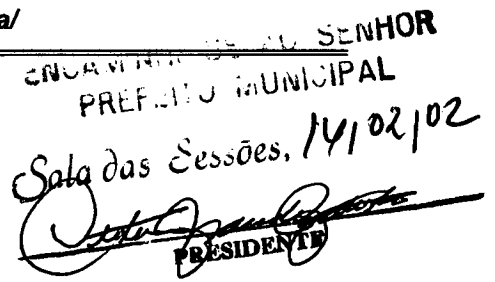 a/
SENHOR
PREFEITO MUNICIPAL
Sala das Sessões, 14/02/02
PRESIDENTE